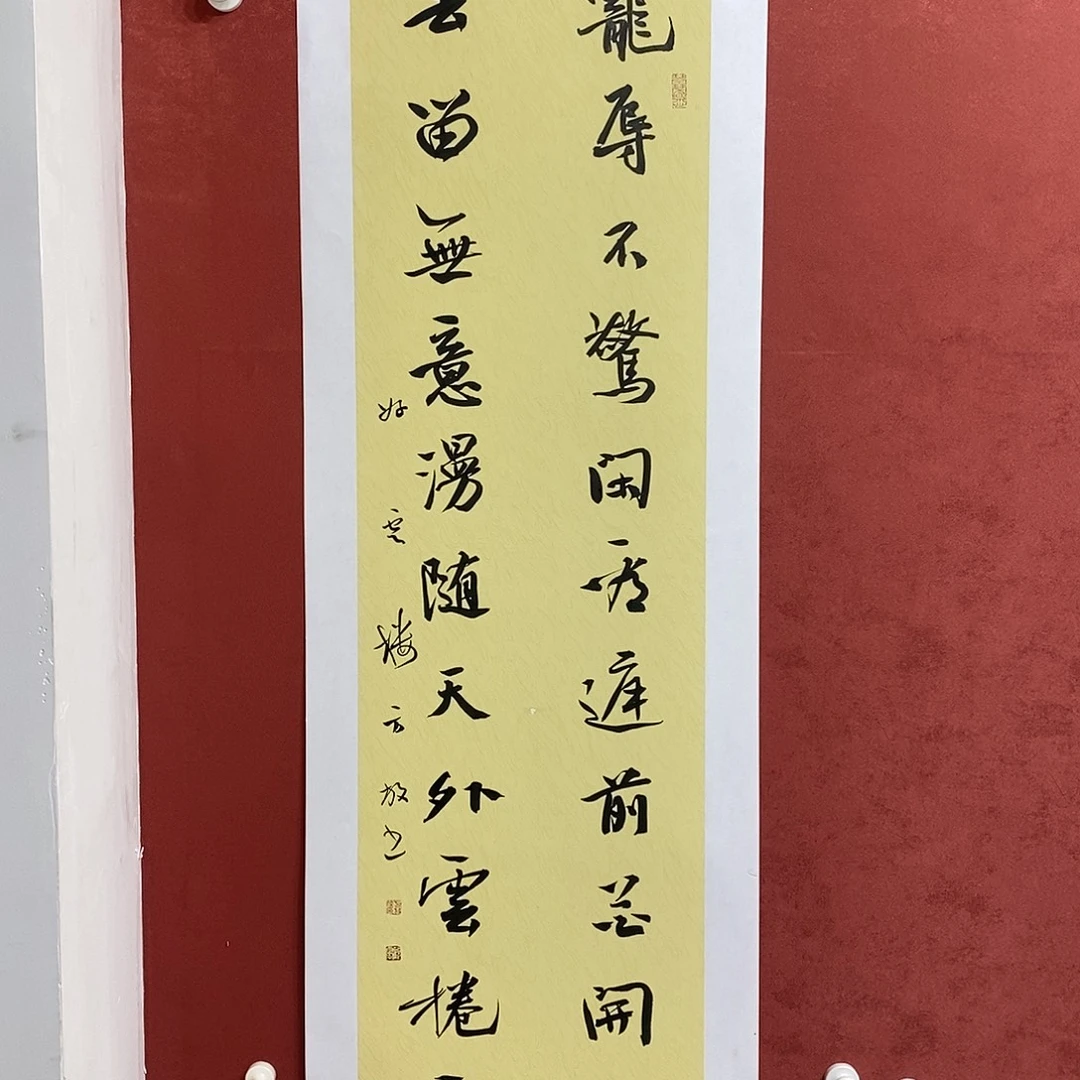 寵辱不驚閑看庭前花開
去留無意漫随天外雲捲
好雲樓方放書